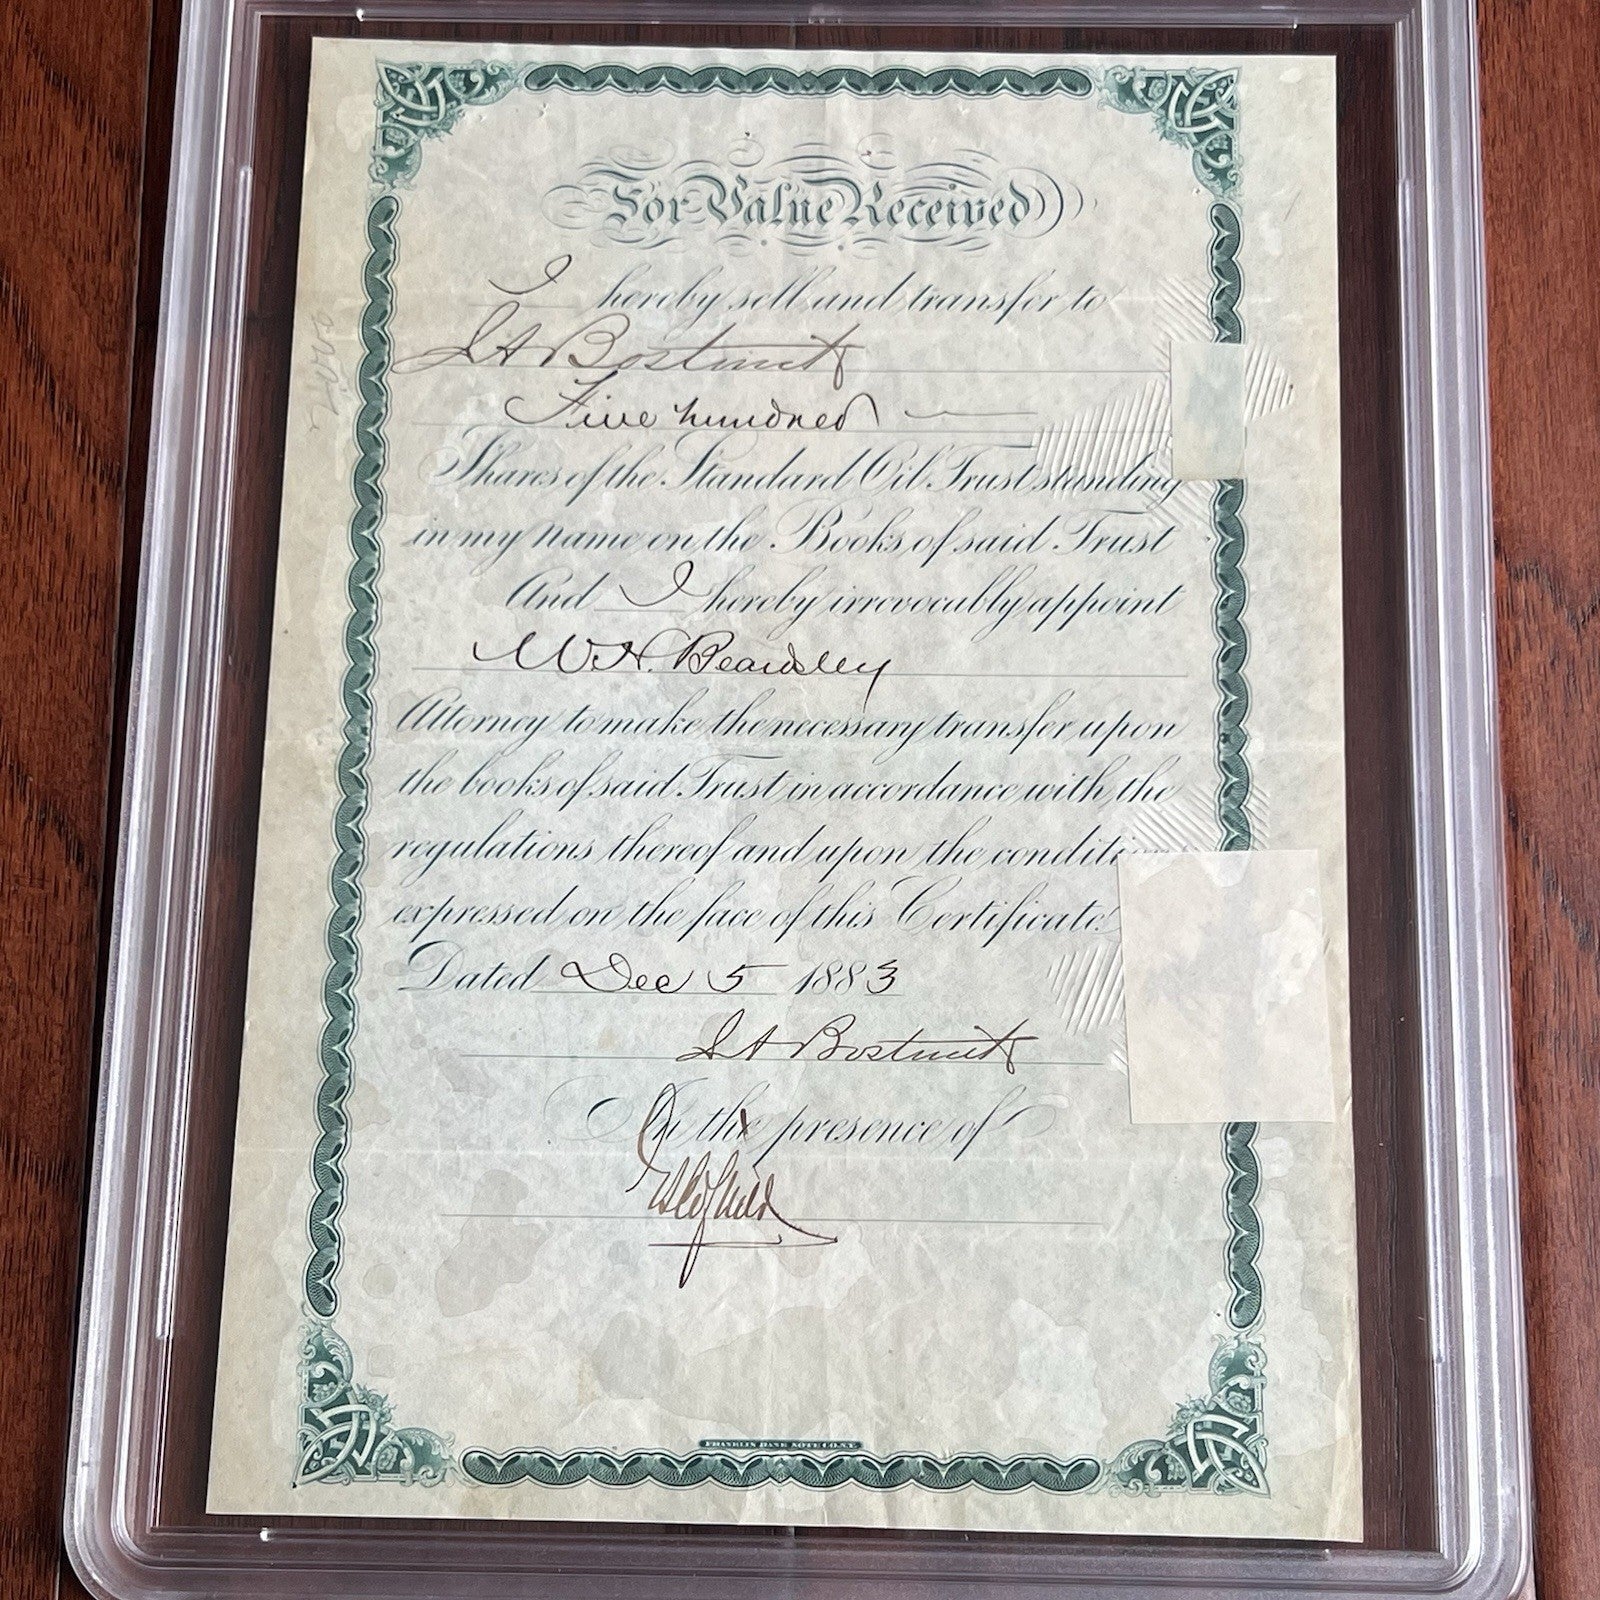 For Value Received
I hereby sell and transfer to
J A Bostwick
Five hundred
Shares of the Standard Oil Trust standing
in my name on the Books of said Trust
And I hereby irrevocably appoint
W. H. Beardsley
Attorney to make the necessary transfer upon
the books of said Trust in accordance with the
regulations thereof and upon the
expressed on the face of this Certificate.
Dated Dec 5 1883
J A Bostwick
In the presence of
FRANKLIN BANK NOTE CO. N.Y.